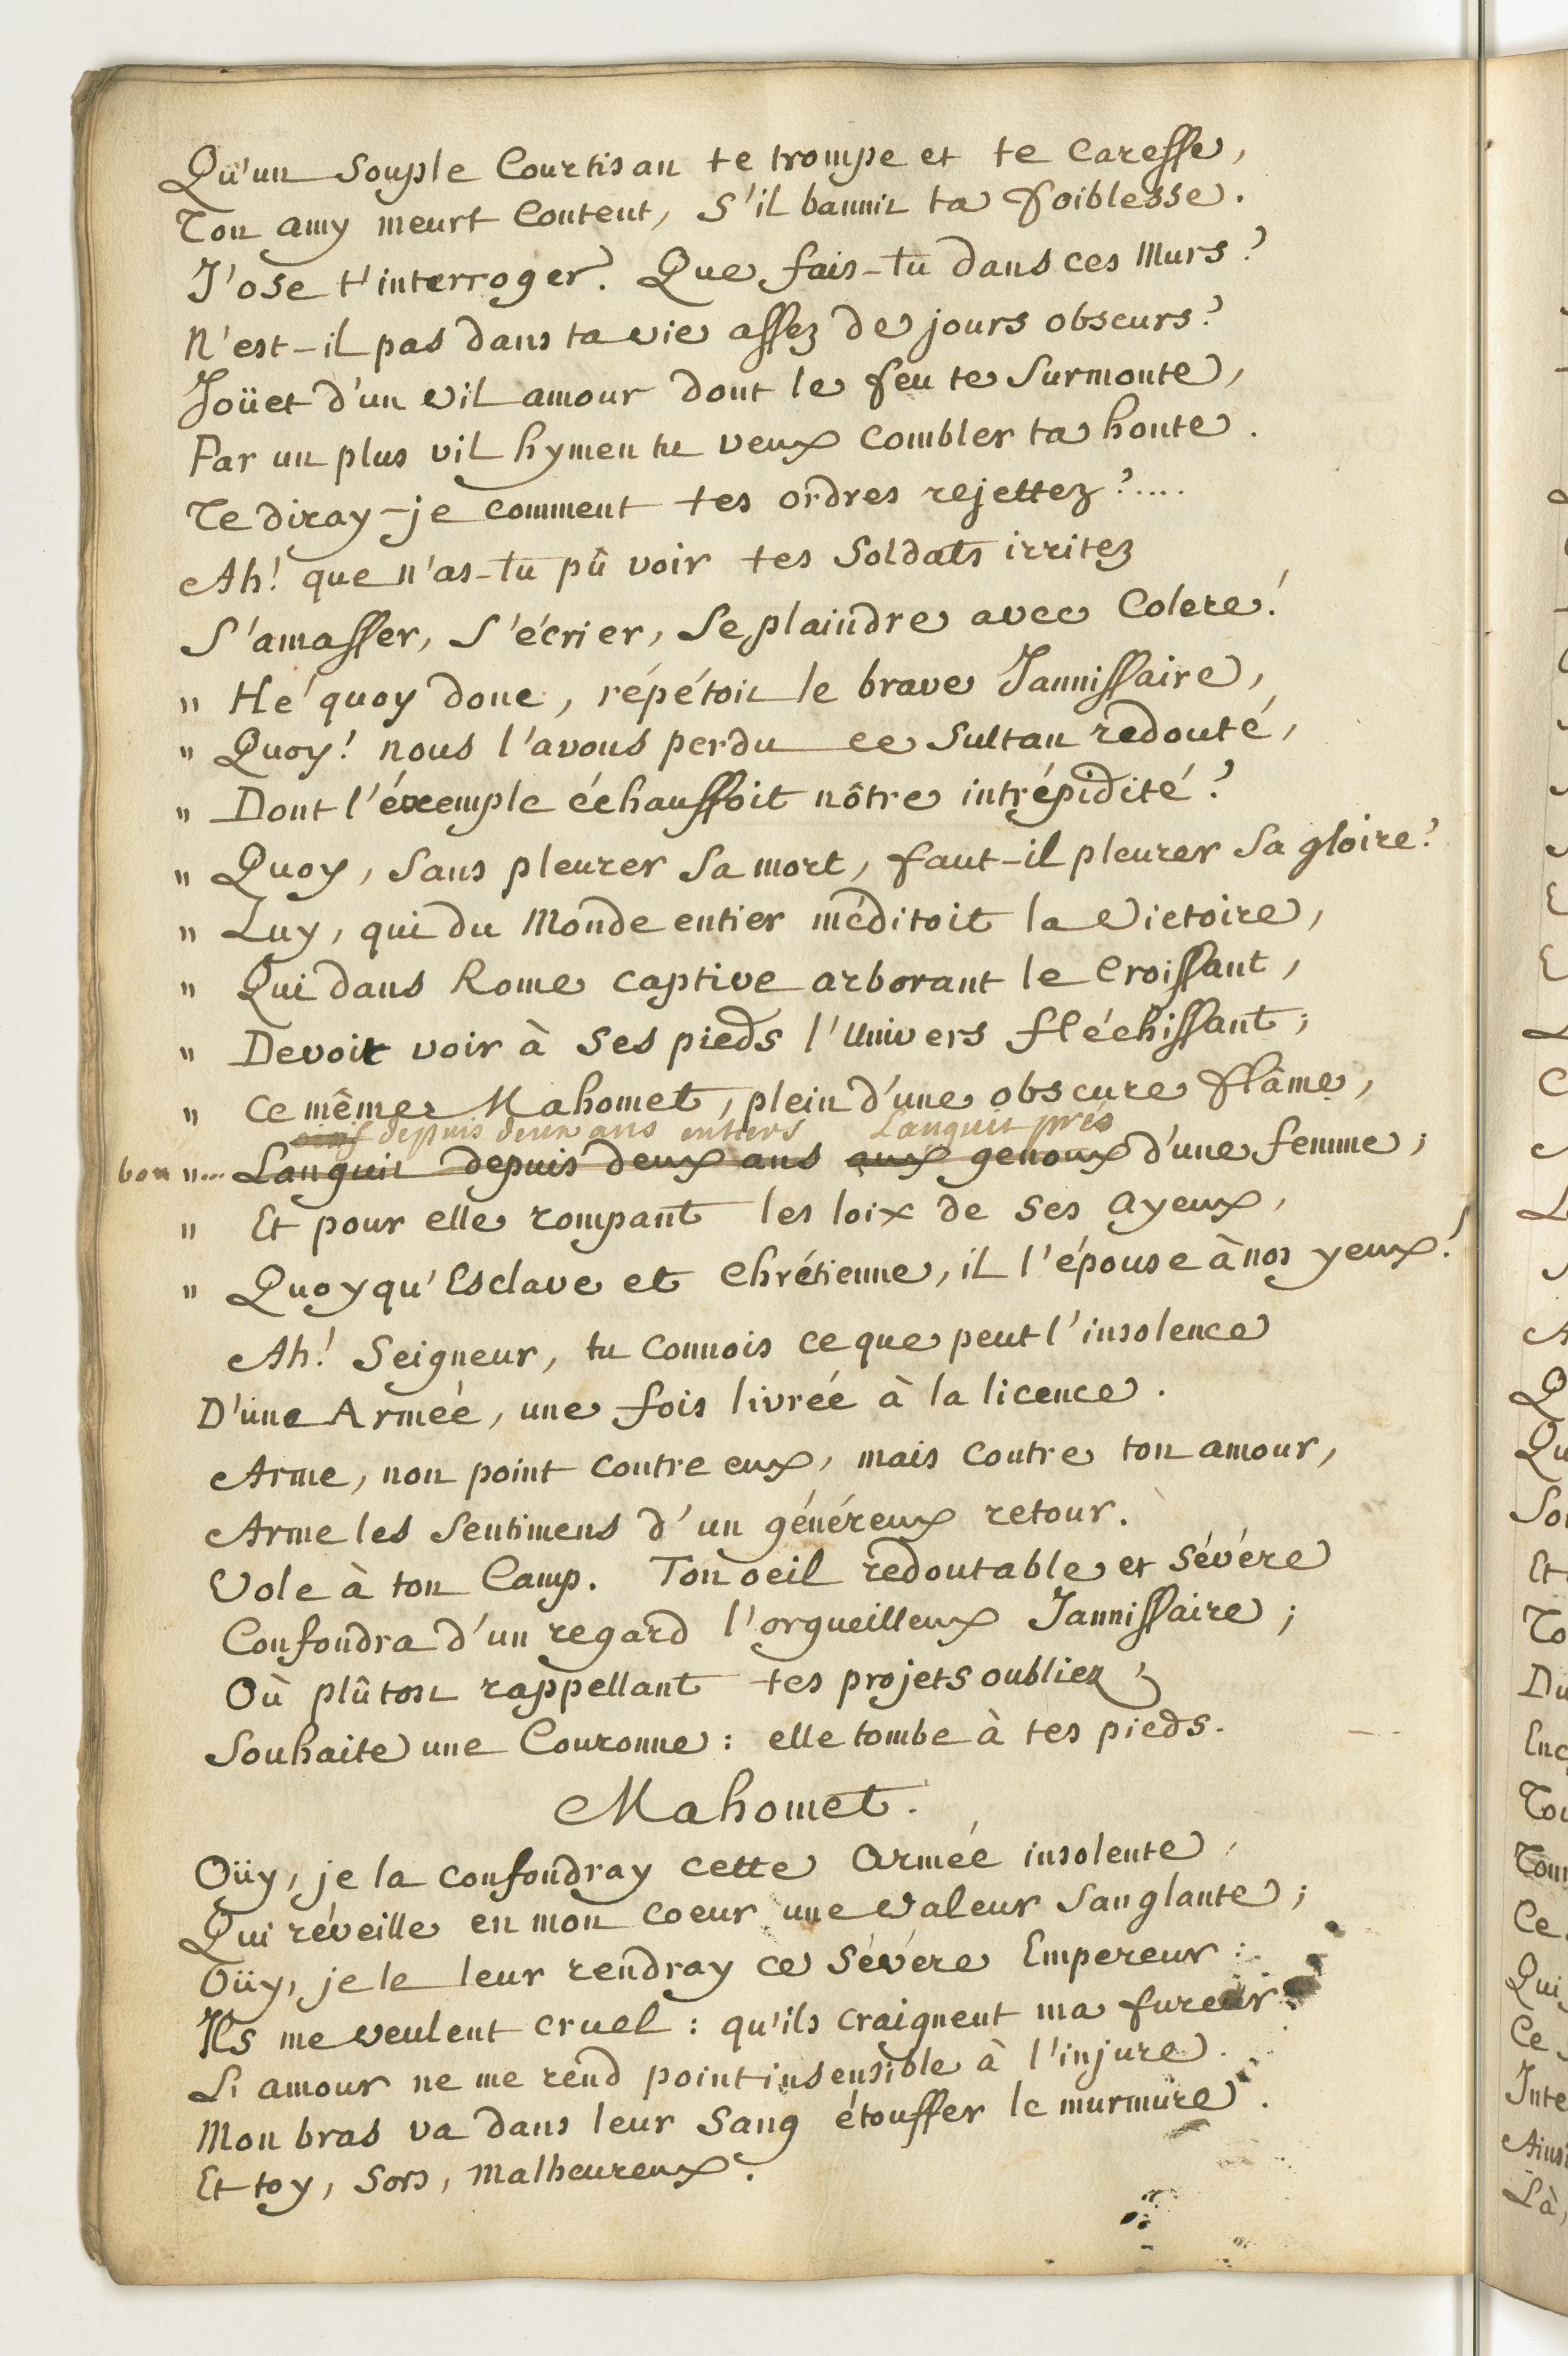 Qu'un souple Courtisan te trompe et te caresse,
Ton amy meurt content, s'il bannit ta foiblesse.
J'ose t'interroger. Que fais-tu dans ces Murs?
N'est-il pas dans ta vie assez de jours obscurs?
Joüet d'un vil amour dont le feu te surmonte,
Par un plus vil hymen tu veux combler ta honte.
Te diray-je comment tes ordres rejettez?....
Ah! que n'as-tu pû voir tes Soldats irritez
S'amasser, s'écrier, se plaindre avec colere!
" Hé quoy donc, répétoit le brave Jannissaire,
" Quoy! nous l'avons perdu ce Sultan redouté,
" Dont l'éxemple échauffoit nôtre intrépidité?
" Quoy, sans pleurer sa mort, faut-il pleurer sa gloire?
" Luy, qui du Monde entier méditoit la Victoire,
" Qui dans Rome captive arborant le Croissant,
" Devoit voir à ses pieds l'Univers fléchissant;
" Ce même Mahomet, plein d'une obscure flâme,
depuis deux ans entiers Languit prés
bon "... Languit depuis deux ans aux genoux d'une femme;
" Et pour elle rompant les loix de ses ayeux,
" Quoyqu'Esclave et Chrétienne, il l'épouse à nos yeux!
Ah! Seigneur, tu connois ce que peut l'insolence
D'une Armée, une fois livrée à la licence.
Arme, non point contre eux, mais contre ton amour,
Arme les sentimens d'un généreux retour.
Vole à ton Camp. Ton oeil redoutable et sévére
Confondra d'un regard l'orgueilleux Jannissaire;
Où plûtost rappellant tes projets oubliez,
Souhaite une Couronne: elle tombe à tes pieds.
Mahomet.
Oüy, je la confondray cette Armée insolente,
Qui réveille en mon coeur une valeur sanglante;
Oüy, je le leur rendray ce sévére Empereur:
Ils me veulent cruel: qu'ils craignent ma fureur.
L'amour ne me rend point insensible à l'injure.
Mon bras va dans leur sang étouffer le murmure.
Et toy, sors, malheureux.